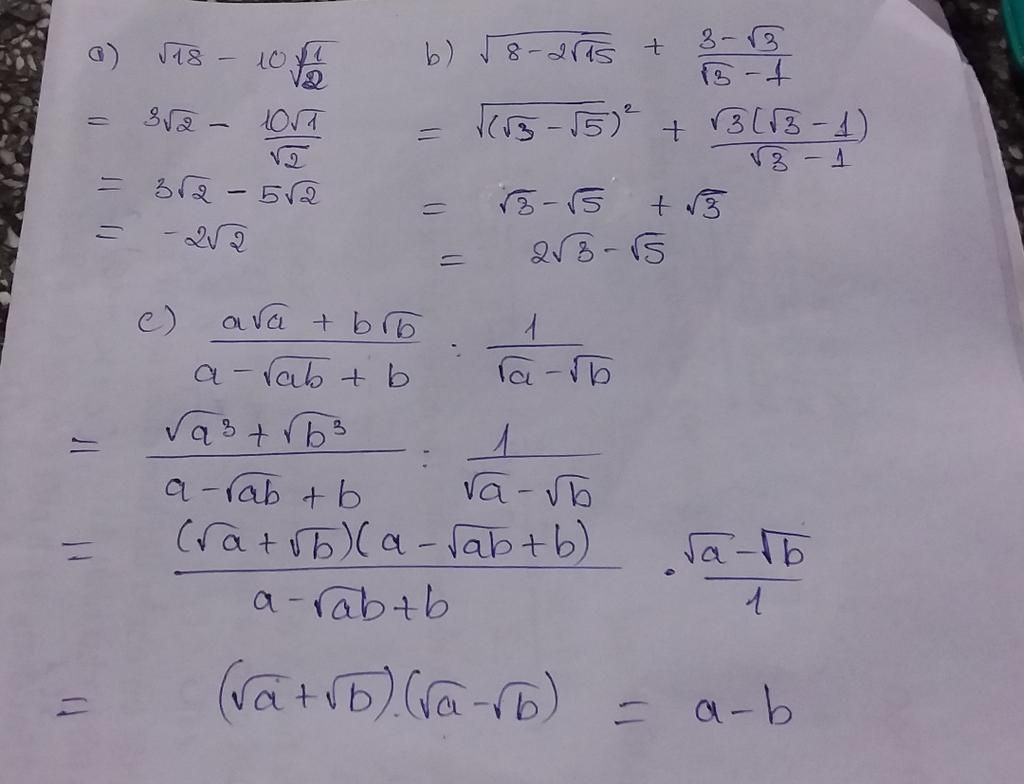 a) √18 - 10√1/√2
= 3√2 - 10√1/√2
= 3√2 - 5√2
= -2√2
b) √(8-2√15) + (3-√3)/(√3-1)
= √((√3-√5)²) + √3(√3-1)/(√3-1)
= √3-√5 + √3
= 2√3-√5
c) (a√a + b√b)/(a-√ab + b) : 1/(√a-√b)
= (√a³ + √b³)/(a-√ab + b) : 1/(√a-√b)
= (√a+√b)(a-√ab+b)/(a-√ab+b) . (√a-√b)/1
= (√a+√b).(√a-√b) = a-b